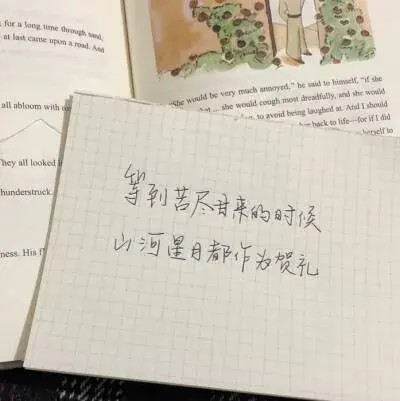 for a long time through sand,
at last came upon a road. And
all abloom with
They all looked
thunderstruck.
ness. His
She would be very much annoyed," he said to himself, "if she
she would cough most dreadfully, and she would
to avoid being laughed at. And I should
back to life—for if I did
herself to
等到苦尽甘来的时候
山河星月都作为贺礼